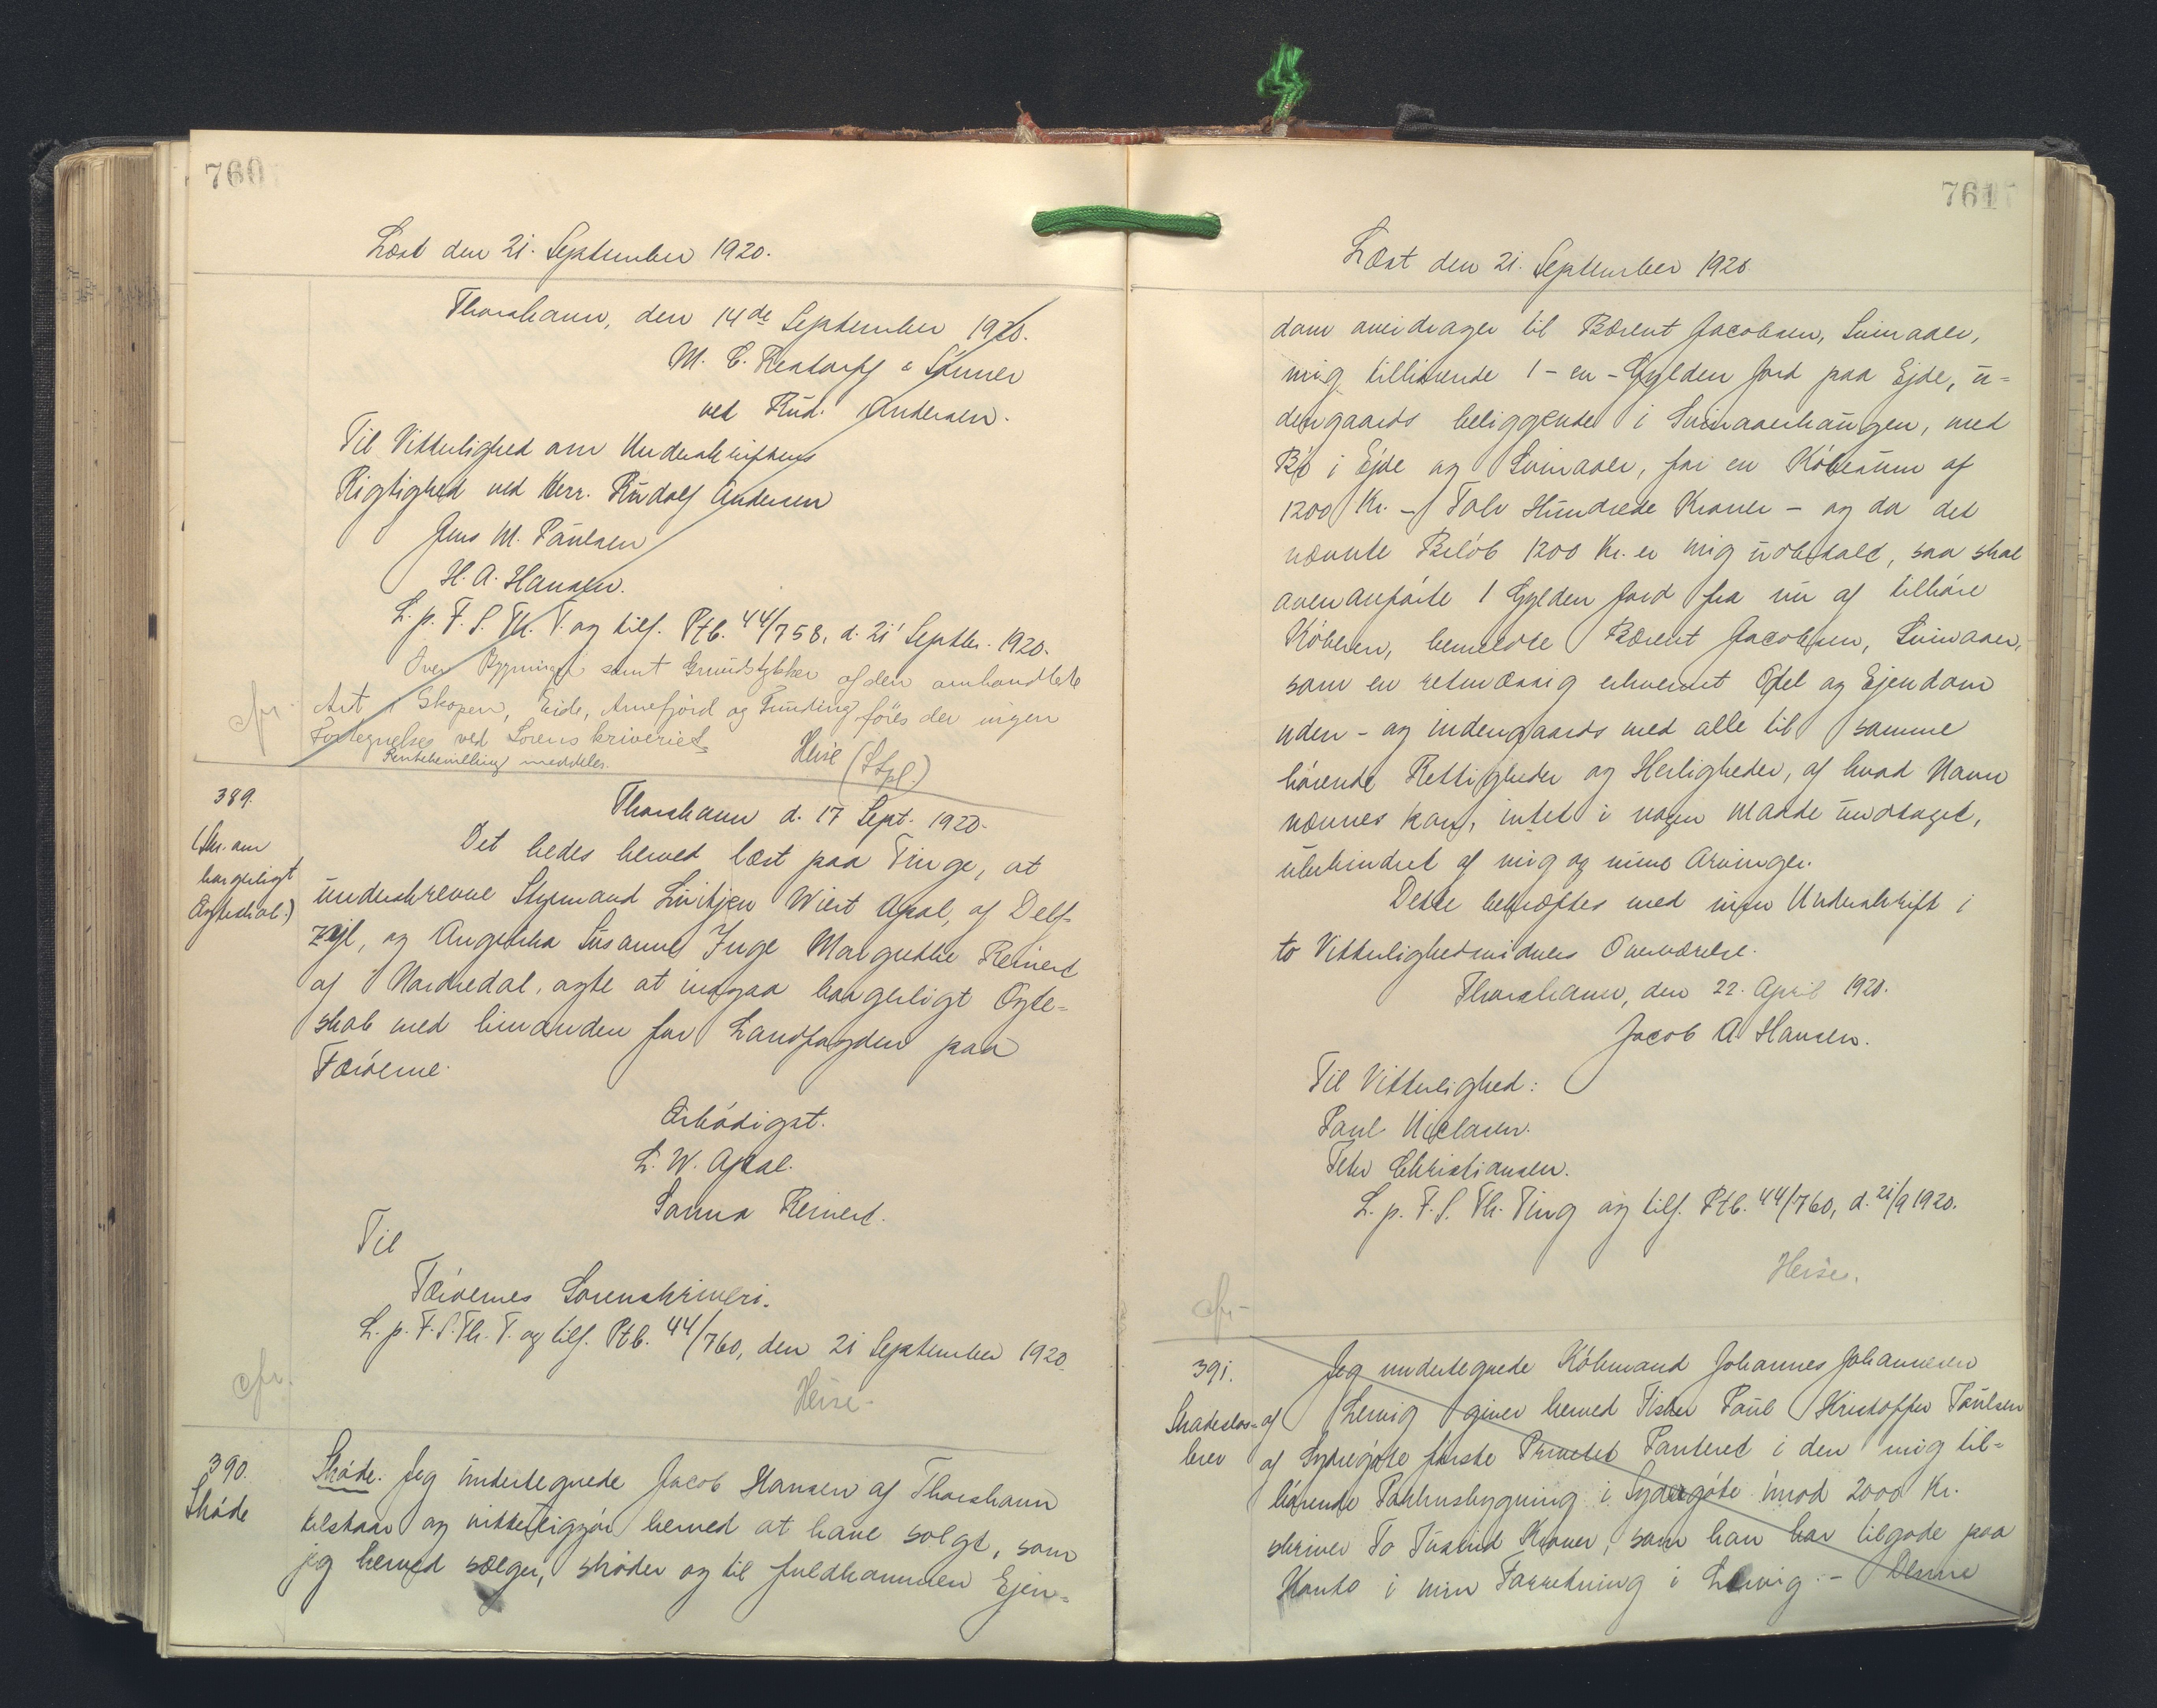 760
Læst den 21. September 1920.
Thorshavn, den 14de September 1920.
M. C. Restorff & Sønner
ved Rud. Andersen.
Til Vitterlighed om Underskriftens
Rigtighed ved Herr. Rudolf Andersen
Jens M. Paulsen
H. A. Hansen.
L. p. F. S. Th. T. og tilf. Ptb. 44/758, d. 21' Septbr. 1920.
Over Bygninger samt Grundstykker af den omhandlede
cfr. Art i Skopen, Eide, Arnefjord og Funding føres der ingen
Fortegnelse ved Sorenskriveriet
Rentebevilling meddeles. Heise (Stpl.)
389.
(Skr. om
borgerligt
Ægteskab.)
Thorshavn d. 17 Sept. 1920.
Det bedes herved læst paa Tinge, at
underskrevne Styrmand Luitjen Wiert Apol, af Delf-
zijl, og Angelika Susanne Inge Margrethe Reinert
af Nordredal, agte at indgaa borgerligt Ægte=
skab med hinanden for Landfogden paa
Færøerne.
Ærbødigst.
L. W. Apol.
Sanna Reinert.
Til
Færøernes Sorenskriveri.
L. p. F. S. Th. T. og tilf. Ptb. 44/760, den 21 September 1920.
cfr. Heise.
390.
Skøde
Skøde. Jeg undertegnede Jacob Hansen af Thorshavn
tilstaar og vitterliggør herved at have solgt, som
jeg herved sælger, skøder og til fuldkommen Ejen=
761
Læst den 21. September 1920.
dom overdrager til Bærent Jacobsen, Svinaaer,
mig tilhørende 1 - en - Gylden Jord paa Ejde, u=
dengaards beliggende i Svinaaerhaugen, med
Bø i Ejde og Svinaaer, for en Købesum af
1200 Kr. - Tolv Hundrede Kroner - og da det
nævnte Beløb 1200 Kr. er mig udbetalt, saa skal
ovenanførte 1 Gylden Jord fra nu af tilhøre
Køberen, bemeldte Bærent Jacobsen, Svinaaer,
som en retmæssig erhvervet Odel og Ejendom
uden - og indengaards med alle til samme
hørende Rettigheder og Herligheder, af hvad Navn
nævnes kan, intet i nogen Maade undtaget,
ubehindret af mig og mine Arvinger.
Dette bekræftes med min Underskrift i
to Vitterlighedsvidners Overværelse.
Thorshavn, den 22. April 1920.
Jacob A Hansen.
Til Vitterlighed:
Paul Niclasen.
Peter Christiansen.
L. p. F. S. Th. Ting og tilf. Ptb. 44/760, d. 21/9 1920.
Heise.
cfr.
391.
Skadesløs=
brev
Jeg undertegnede Købmand Johannes Johannesen
af Lervig giver herved Fisker Paul Kristoffer Paulsen
af Sydregøte første Prioritet Panteret i den mig til=
hørende Pakhusbygning i Sydregøte imod 2000 Kr.
skriver To Tusind Kroner, som han har tilgode paa
Konto i min Forretning i Lervig. - Denne